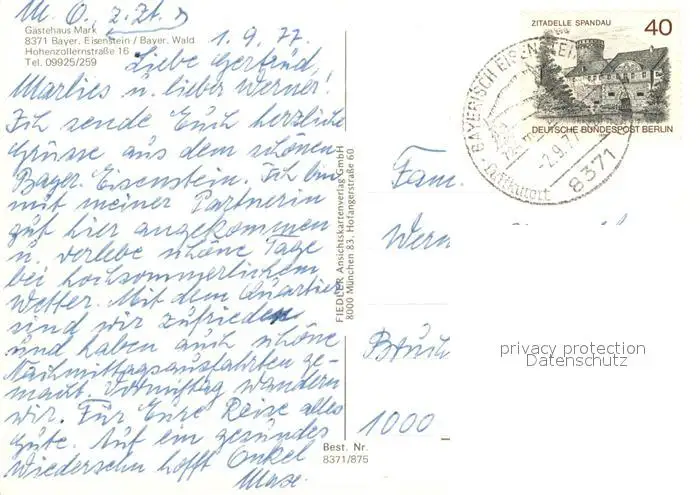 M. O., z. Zt.
Gästehaus Mark
8371 Bayer. Eisenstein / Bayer. Wald
Hohenzollernstraße 16
Tel. 09925/259
1. 9. 77
Liebe Gertrud,
Marlies u. lieber Werner!
Ich sende Euch herzliche
Grüsse aus dem schönen
Bayer. Eisenstein. Ich bin
mit meiner Partnerin
gut hier angekommen
u. verlebe schöne Tage
bei hochsommerlichem
Wetter. Mit dem Quartier
sind wir zufrieden
und haben auch schöne
Nachmittagsausfahrten ge-
macht. Vormittag wandern
wir. Für Eure Reise alles
Gute. Auf ein gesundes
Wiedersehn hofft Onkel
Max.
FIEDLER Ansichtskartenverlag GmbH
8000 München 83, Hofangerstraße 60
Best. Nr.
8371/875
ZITADELLE SPANDAU
40
DEUTSCHE BUNDESPOST BERLIN
BAYERISCH EISENSTEIN
-2.9.77
8371
Luftkurort
Fam.
Wern
1000
privacy protection
Datenschutz